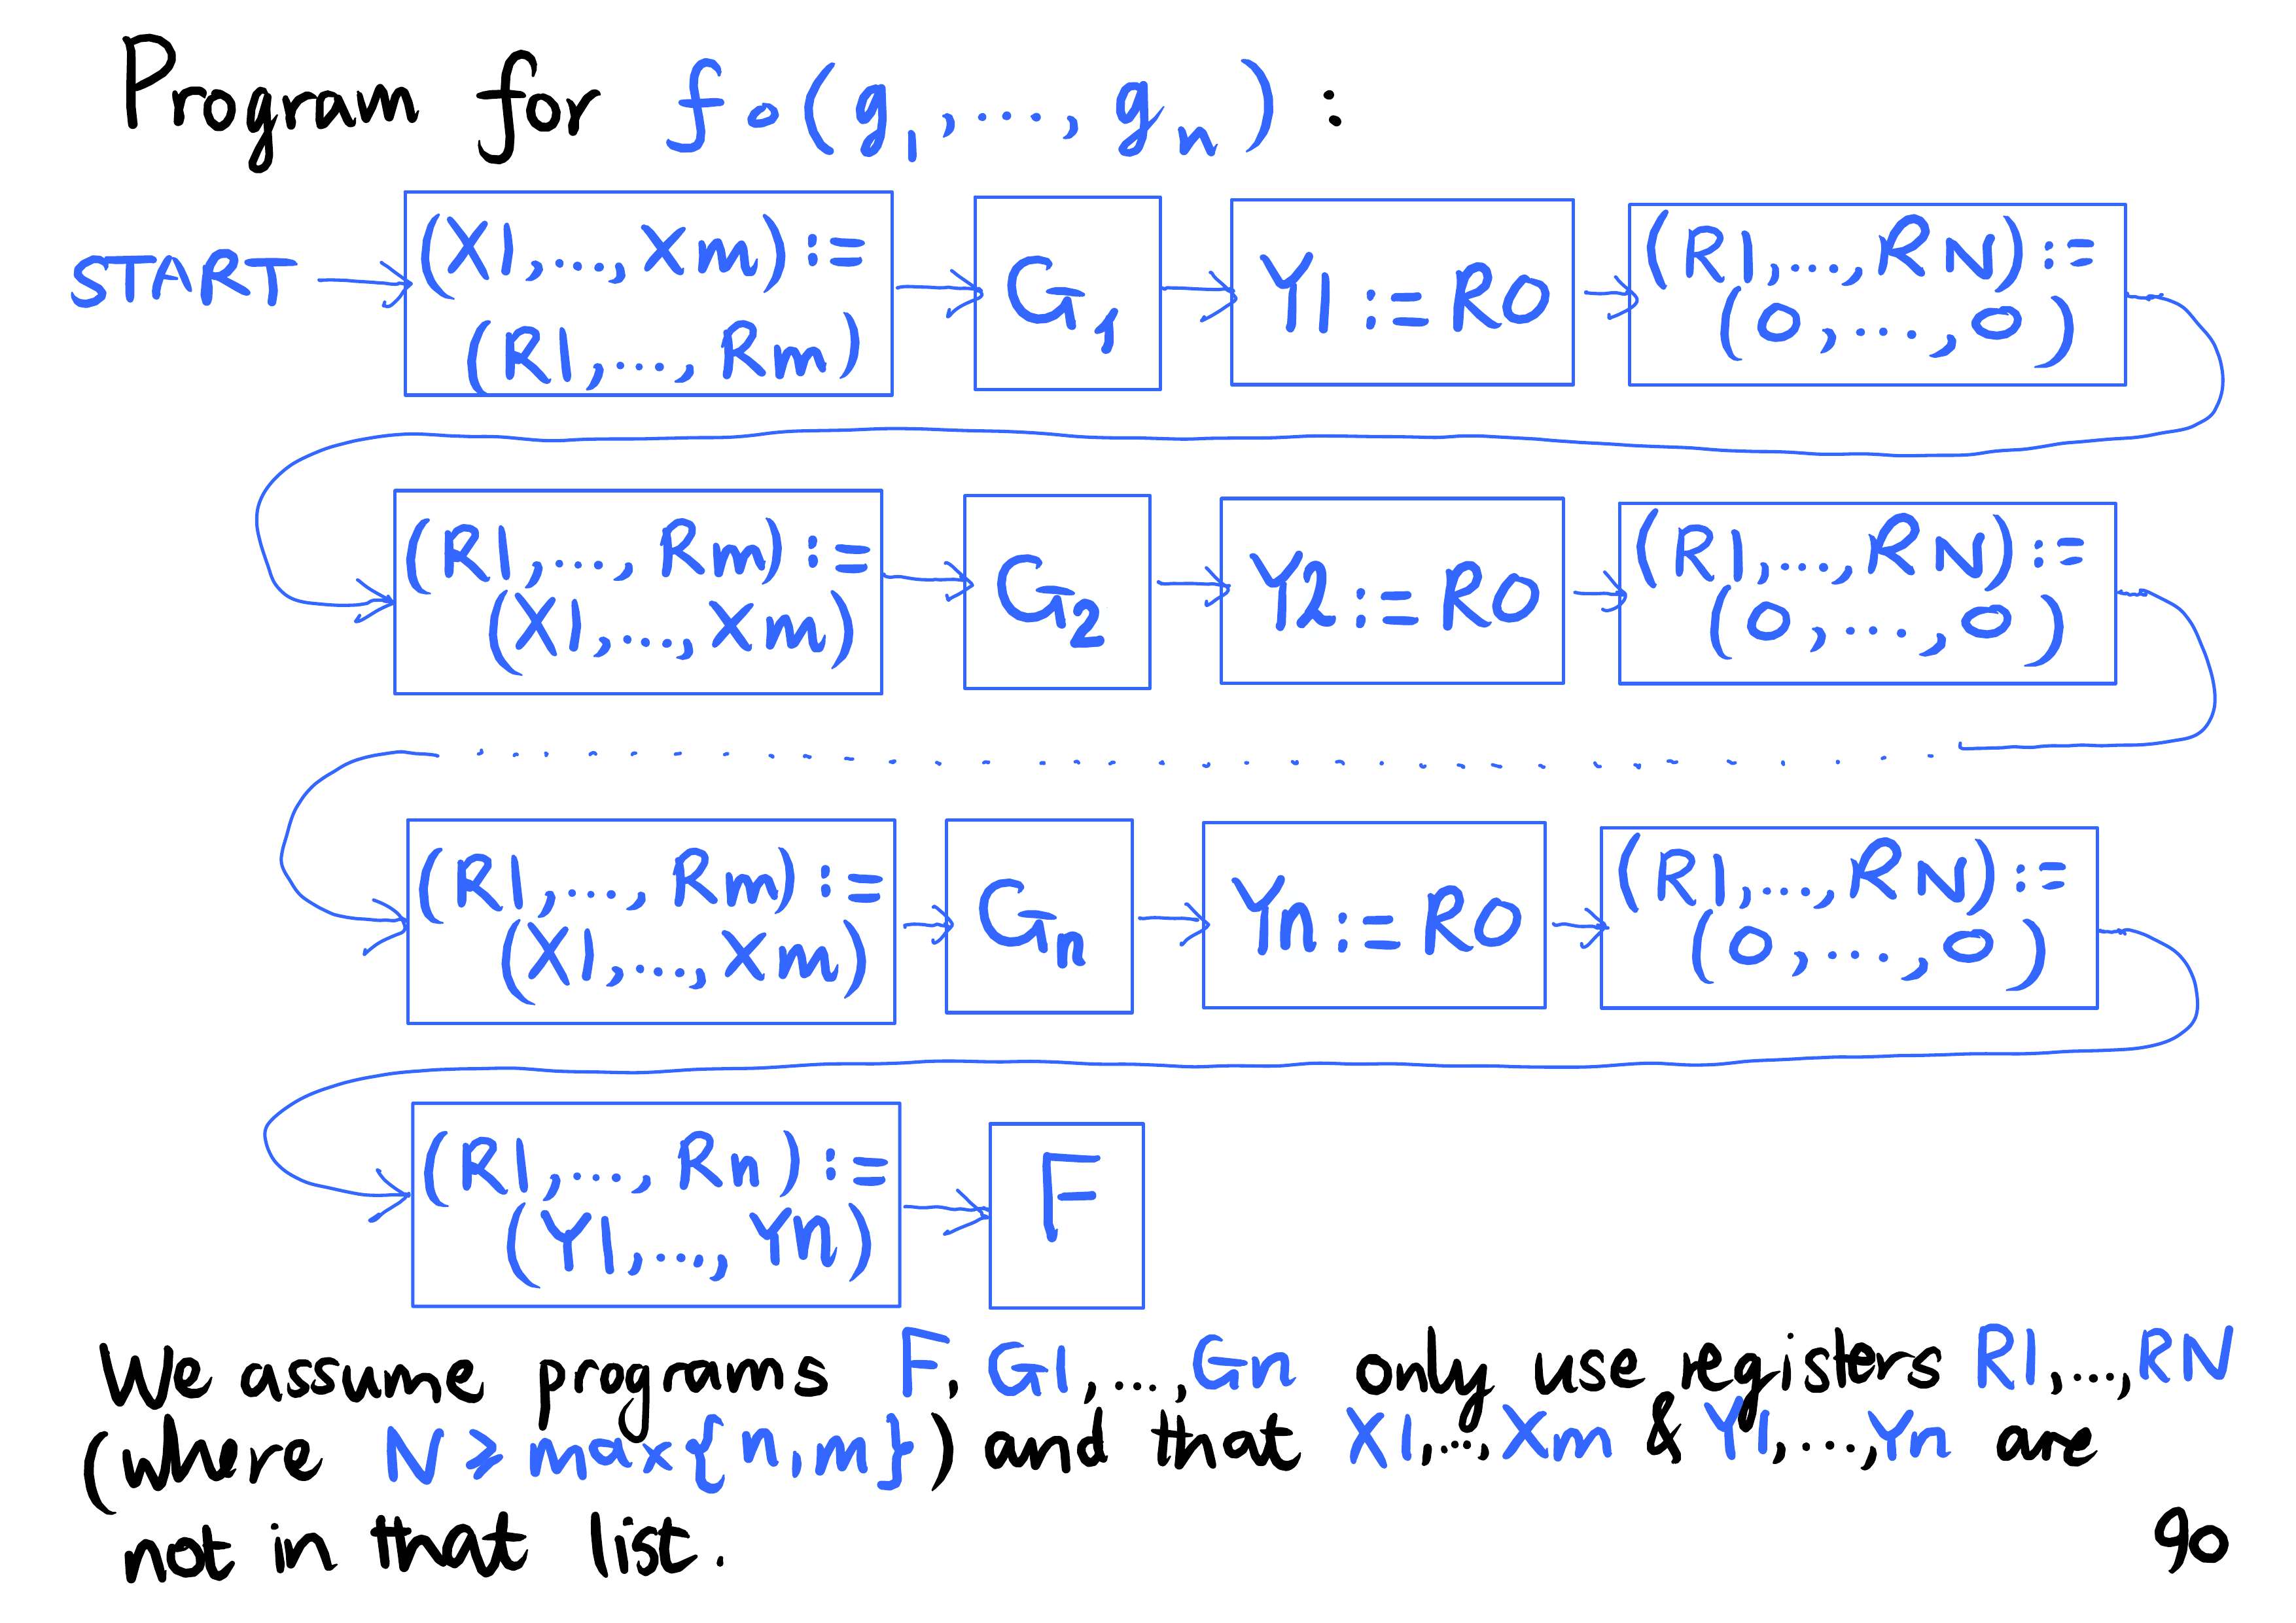 Program for f∘(g₁,...,gₙ) :
START
(X1,...,Xm) :=
(R1,...,Rm)
G₁
Y1 := R0
(R1,...,RN) :=
(0,...,0)
(R1,...,Rm) :=
(X1,...,Xm)
G₂
Y2 := R0
(R1,...,RN) :=
(0,...,0)
(R1,...,Rm) :=
(X1,...,Xm)
Gₙ
Yn := R0
(R1,...,RN) :=
(0,...,0)
(R1,...,Rn) :=
(Y1,...,Yn)
F
We assume programs F, G1,...,Gn only use registers R1,...,RN
(where N ≥ max{n,m}) and that X1,...,Xm & Y1,...,Yn are
not in that list.
90